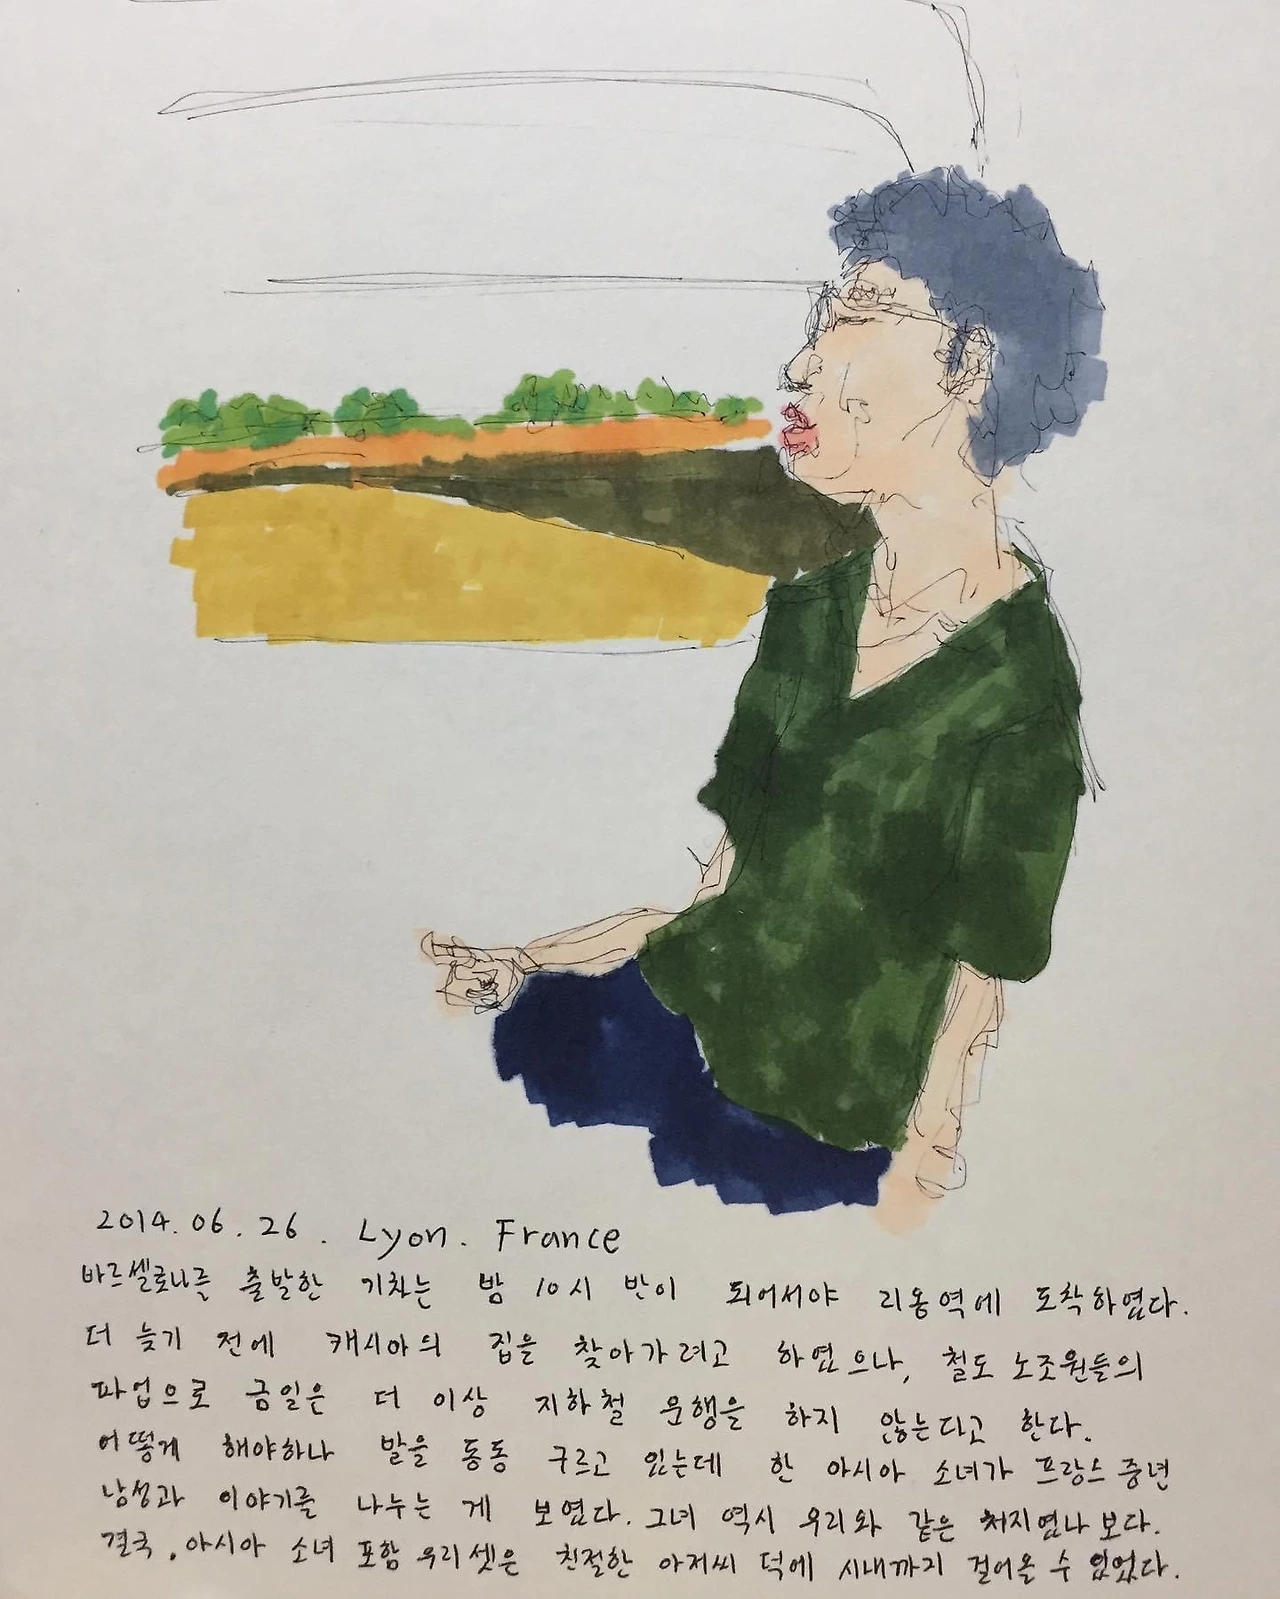 2014. 06. 26. Lyon. France
바르셀로나를 출발한 기차는 밤 10시 반이 되어서야 리옹역에 도착하였다.
더 늦기 전에 캐시아의 집을 찾아가려고 하였으나, 철도 노조원들의
파업으로 금일은 더 이상 지하철 운행을 하지 않는다고 한다.
어떻게 해야하나 발을 동동 구르고 있는데 한 아시아 소녀가 프랑스 중년
남성과 이야기를 나누는 게 보였다. 그녀 역시 우리와 같은 처지였나 보다.
결국, 아시아 소녀 포함 우리 셋은 친절한 아저씨 덕에 시내까지 걸어올 수 있었다.